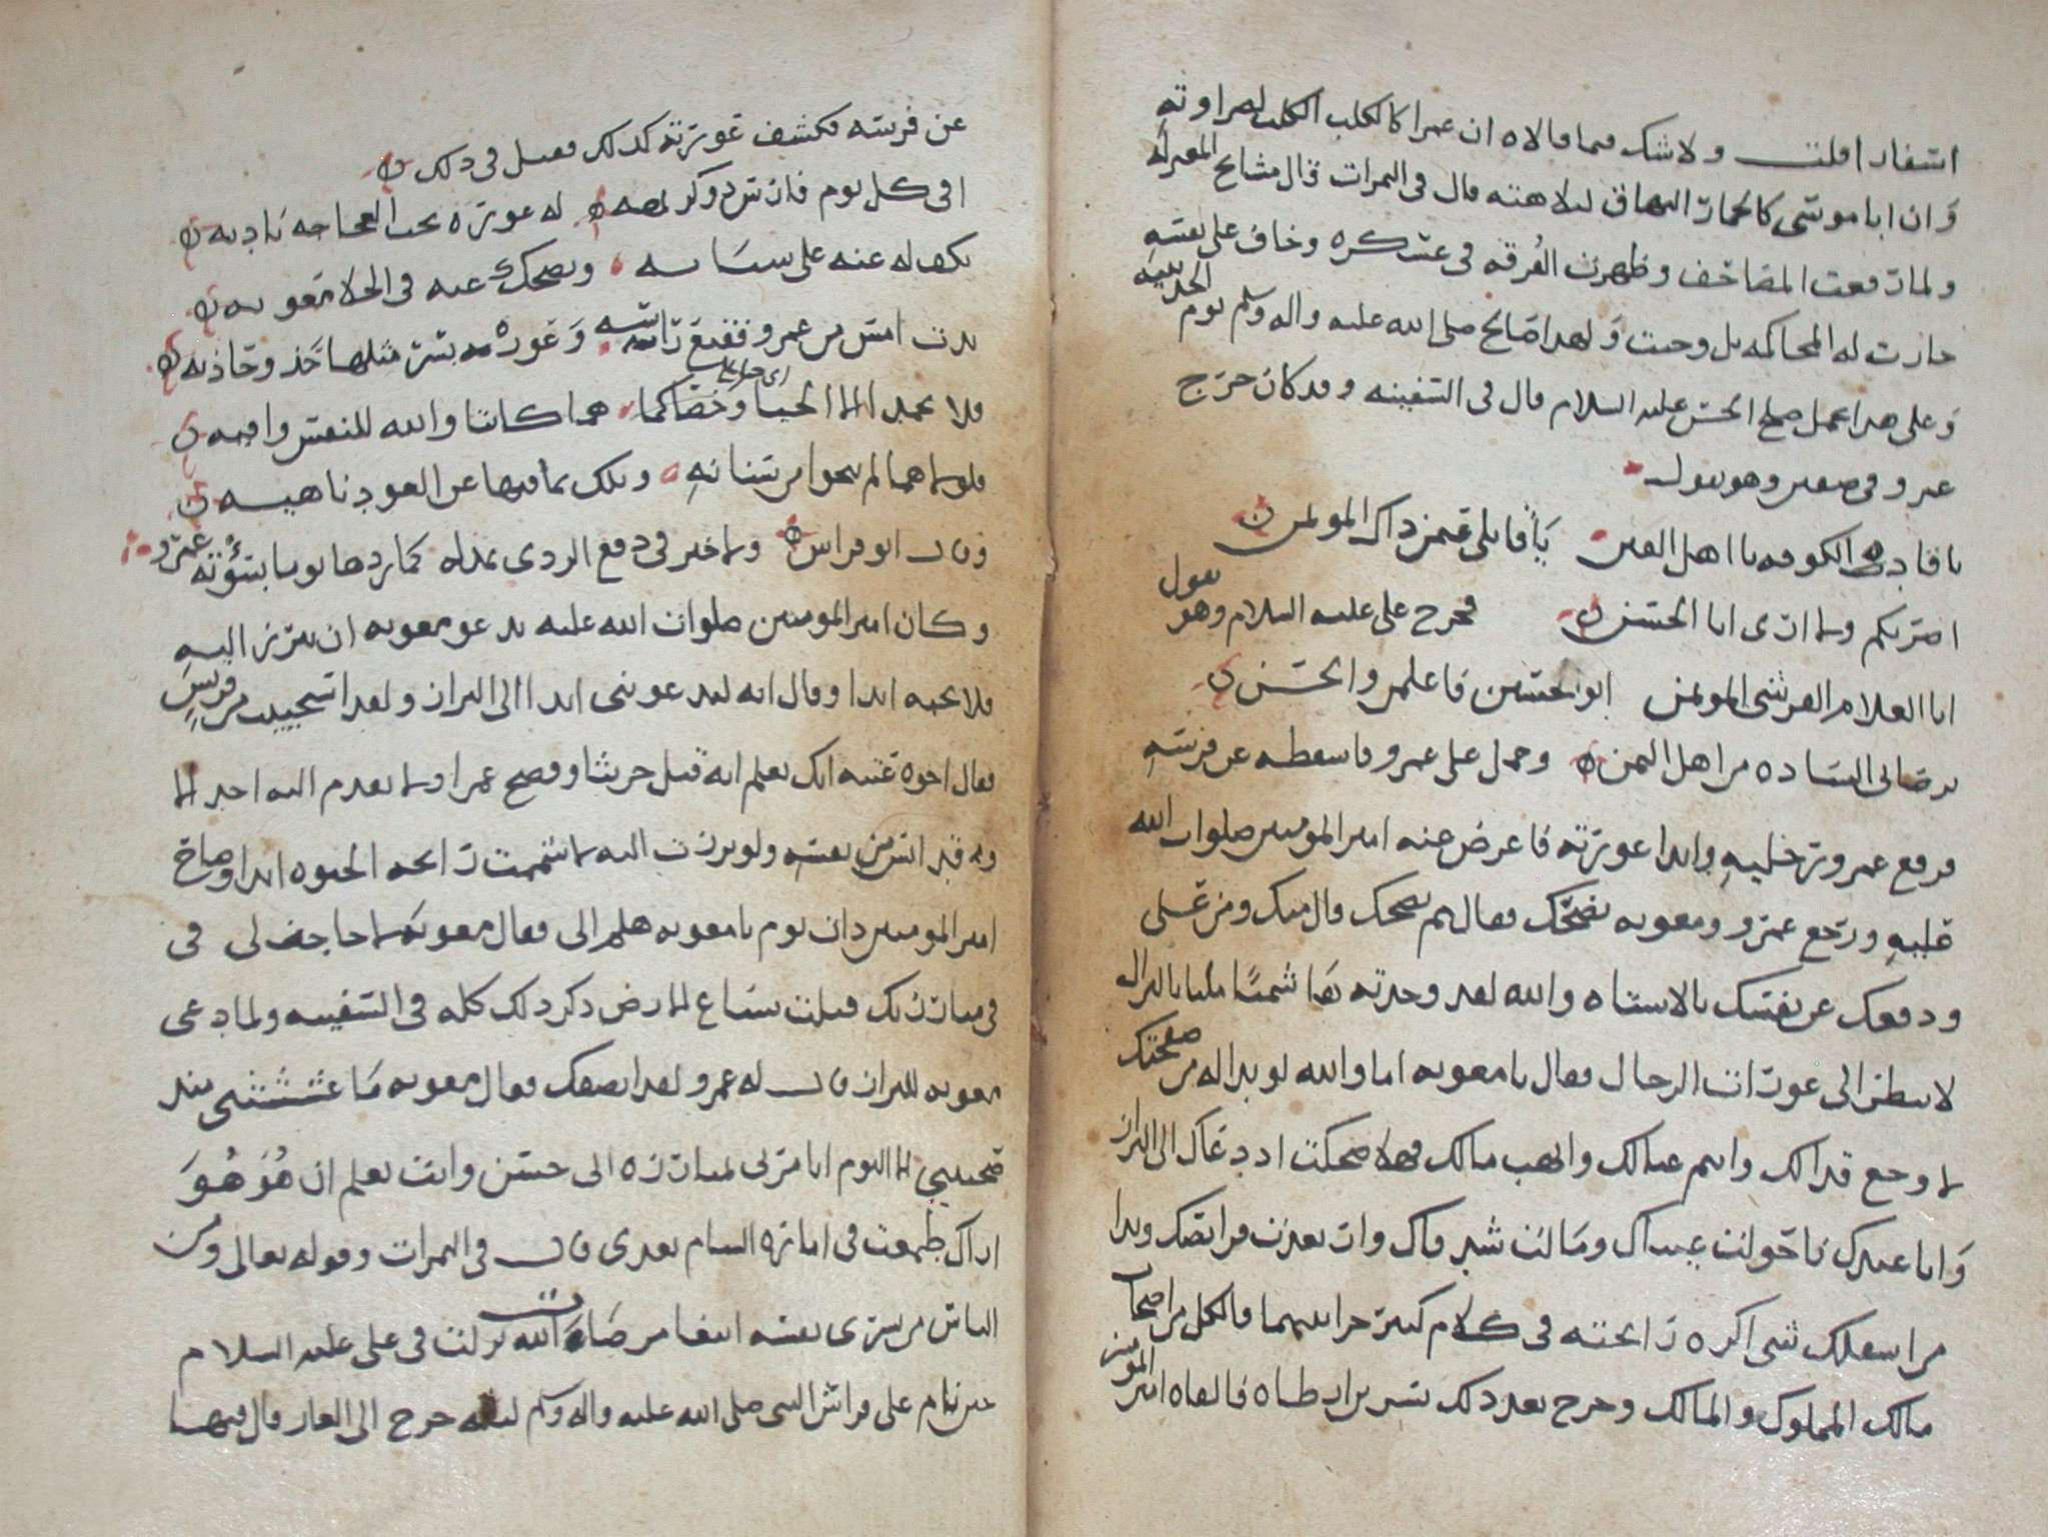 اسفارا قلت ولا شك فيما قالاه ان عمرا كالكلب الكلب لضراوته
وان ابا موسى كالحمار النهاق لبلاهته قال في الثمرات قال مشايخ المعتزله
ولما رفعت المصاحف وظهرت الفرقه في عسكره وخاف على نفسه
جازت له المحاكمه بل وجبت ولهذا صالح صلى الله عليه واله وسلم يوم الحديبيه
وعلى هذا عمل صلح الحسن عليه السلام قال في السفينه وقد كان خرج
عمرو في صفين وهو يقول
يا قاده الكوفه يا اهل الفتن يا قاتلي عثمن ذاك المؤتمن
اضربكم ولا ارى ابا الحسن فخرج علي عليه السلام وهو يقول
انا الغلام القرشي المؤتمن ابو الحسين فاعلمن والحسن
يرضى الساده من اهل اليمن وحمل على عمرو فاسقطه عن فرسه
فرفع عمرو رجليه وابدا عورته فاعرض عنه امير المومنين صلوات الله
عليه ورجع عمرو ومعويه يضحك فقال بم تضحك قال منك ومن علي
ودفعك عن نفسك بالاستاه والله لقد وجدته هاشميا مليا بالنزال
لا ينظر الى عورات الرجال فقال يا معويه اما والله لو بدا له من صفحتك
لا وجع قذالك وايتم عيالك وانهب مالك فهلا ضحكت اذ دعاك الى البراز
وانا عندك فاحولت عيناك ومالت شدقاك وارتعدت فرائصك وبدا
من اسفلك شي اكره رائحته في كلام كثير جرا بينهما قال كل من اصحاب
مالك المملوك والمالك وخرج بعد ذلك بسر بن ارطاه فالقاه امير المومنين
عن فرسه فكشف عورته كذلك فقيل في ذلك
افي كل يوم فارس ذو كريهه له عوره تحت العجاجه باديه
يكف له عنه علي سنانه ويضحك عنه في الخلا معويه
بدت امس من عمرو فقنع راسه وعوره بسر مثلها حذو حاذيه
فلا تحمدا الا الحيا وخصاكما هما كانتا والله للنفس واقيه
فلولاهما لم تنجوا من سنانه وتلك بما فيها عن العود ناهيه
وقال ابو فراس ولا خير في دفع الردى بمذله كما ردها يوما بسؤته عمرو
وكان امير المومنين صلوات الله عليه يدعو معويه ان يبرز اليه
فلا يجبه ابدا وقال انه ليدعوني ابدا الى البراز ولقد استحييت من قريش
فقال اخوه عتبه انك تعلم انه قتل حريثا وفضح عمرا ولا يقدم اليه احد الا
وقد ايس من نفسه ولو برزت اليه لا شممت رائحه الحيوه ابدا وصاح
امير المومنين ذات يوم يا معويه هلم الي فقال معويه لا حاجه لي في
في مبارزتك قتلت سباع الارض ذكر ذلك كله في السفينه ولما دعى
معويه للبراز قال له عمرو لقد انصفك فقال معويه ما غششتني منذ
صحبتني الا اليوم اتامرني لمبارزه ابي حسن وانت تعلم ان هو هو
اراك طمعت في اماره الشام بعدي قال في الثمرات وقوله تعالى ومن
الناس من يشري نفسه ابتغا مرضات الله نزلت في علي عليه السلام
حين نام على فراش النبي صلى الله عليه واله وسلم ليله خرج الى الغار قال فيها